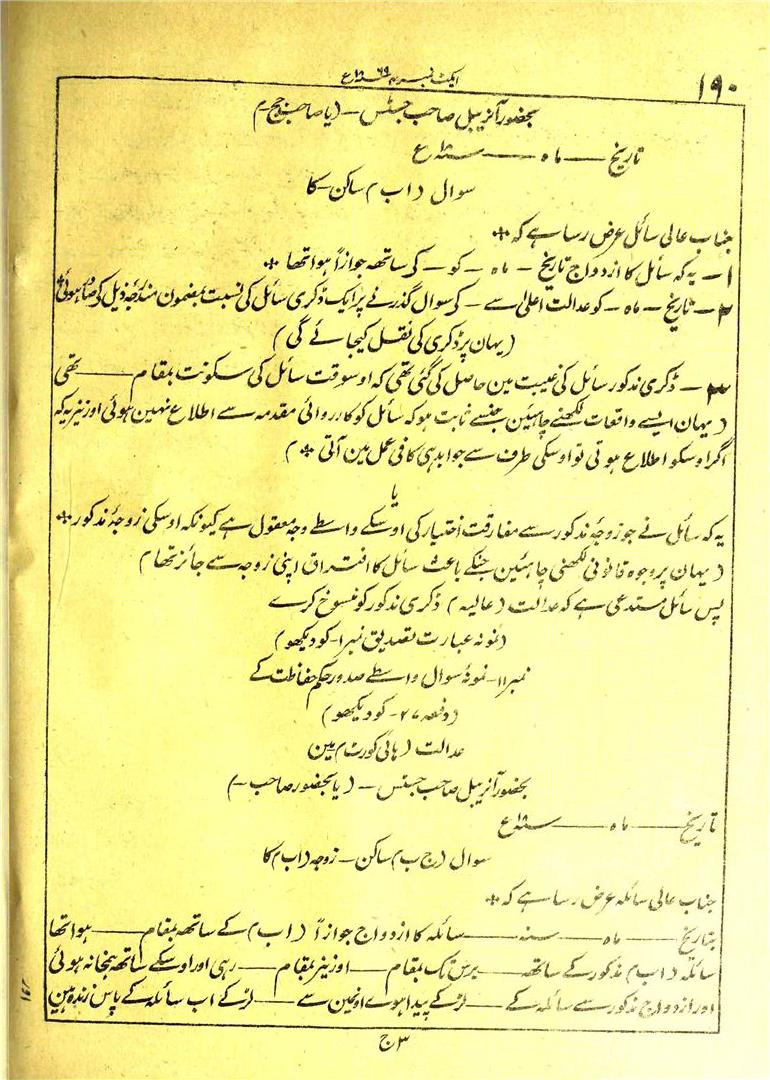 ۱۹۰
ایکٹ نمبر ۴ سنہ ۱۸۶۹ع
بحضور آنریبل صاحب جسٹس — (یا صاحب جج —)
تاریخ — ماہ — سنہ ۱۸ع
سوال (اب) ساکن — کا
جناب عالی سائل عرض رسا ہے کہ ✤
۱ — یہ کہ سائل کا ازدواج تاریخ — ماہ — کو — کے ساتھہ جوازاً ہوا تھا ✤
۲ — تاریخ — ماہ — کو عدالت اعلیٰ سے — کی سوال گذرنے پر ایک ڈکری سائل کی نسبت بمضمون مندرجہ ذیل کے صادر ہوئی ✤
(یہان پر ڈکری کی نقل کیجائے گی)
۳ — ڈکری مذکور سائل کی غیبت مین حاصل کی گئی تھی کہ اوسوقت سائل کی سکونت بمقام — تھی
(یہان ایسے واقعات لکھنے چاہئین جنسے ثابت ہو کہ سائل کو کارروائی مقدمہ سے اطلاع نہین ہوئی اور نیز یہ کہ
اگر اوسکو اطلاع ہوتی تو اوسکی طرف سے جوابدہی کافی عمل مین آتی ✤)
یا
یہ کہ سائل نے جو زوجہ مذکور سے مفارقت اختیار کی اوسکے واسطے وجہ معقول ہے کیونکہ اوسکی زوجہ مذکور ✤
(یہان پر وجوہ قانونی لکھنی چاہئین جنکے باعث سائل کا افتراق اپنی زوجہ سے جائز تھا)
پس سائل مستدعی ہے کہ عدالت (عالیہ) ڈکری مذکور کو منسوخ کرے
(نمونہ عبارت تصدیق نمبر ۱ — کو دیکھو)
نمبر ۱۱ — نمونہ سوال واسطے صدور حکم حفاظت کے
(دفعہ ۲۷ — کو دیکھو)
عدالت (ہائی کورٹ) مین
بحضور آنریبل صاحب جسٹس — (یا بحضور صاحب —)
تاریخ — ماہ — سنہ ۱۸ع
سوال (ج ب) ساکن — زوجہ (اب) کا
جناب عالی سائلہ عرض رسا ہے کہ ✤
بتاریخ — ماہ — سنہ — سائلہ کا ازدواج جوازاً (اب) کے ساتھہ بمقام — ہوا تھا
سائلہ (اب) مذکور کے ساتھہ — برس تک بمقام — اور نیز بمقام — رہی اور اوسکے ساتھہ ہمخانہ ہوئی
اور ازدواج مذکور سے سائلہ کے — لڑکے پیدا ہوے اونمین سے — لڑکے اب سائلہ کے پاس زندہ ہین
۳ ج